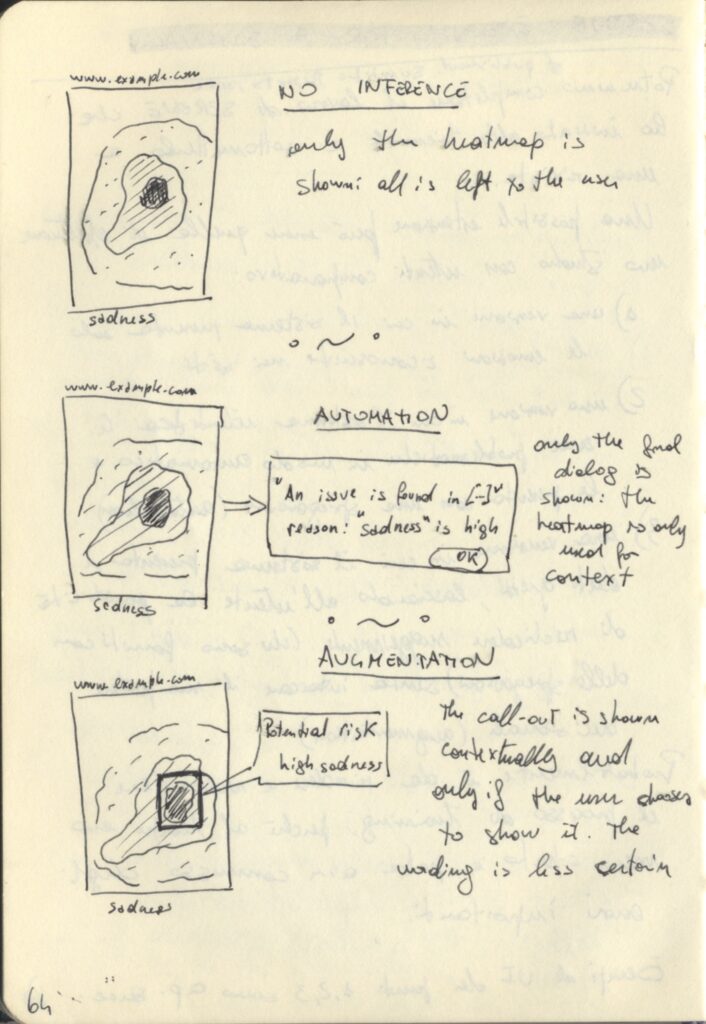 www.example.com
NO INFERENCE
only the heatmap is
shown: all is left to the user
sadness
www.example.com
AUTOMATION
"An issue is found in [...]"
reason: "sadness" is high
OK
only the final
dialog is
shown: the
heatmap is only
used for
context
sadness
AUGMENTATION
www.example.com
Potential risk
high sadness
The call-out is shown
contextually and
only if the user chooses
to show it. The
wording is less certain
sadness
64